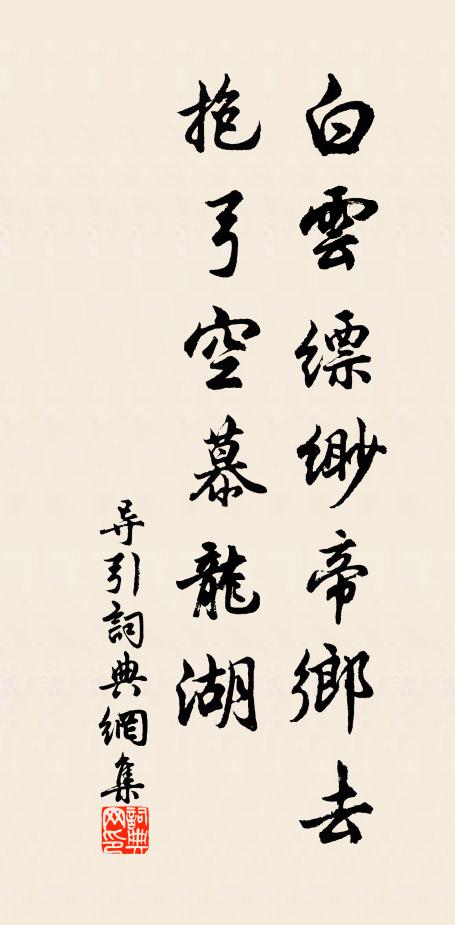 白雲縹緲帝鄉去
抱弓空慕龍湖
导引詞典網集
詞典网印